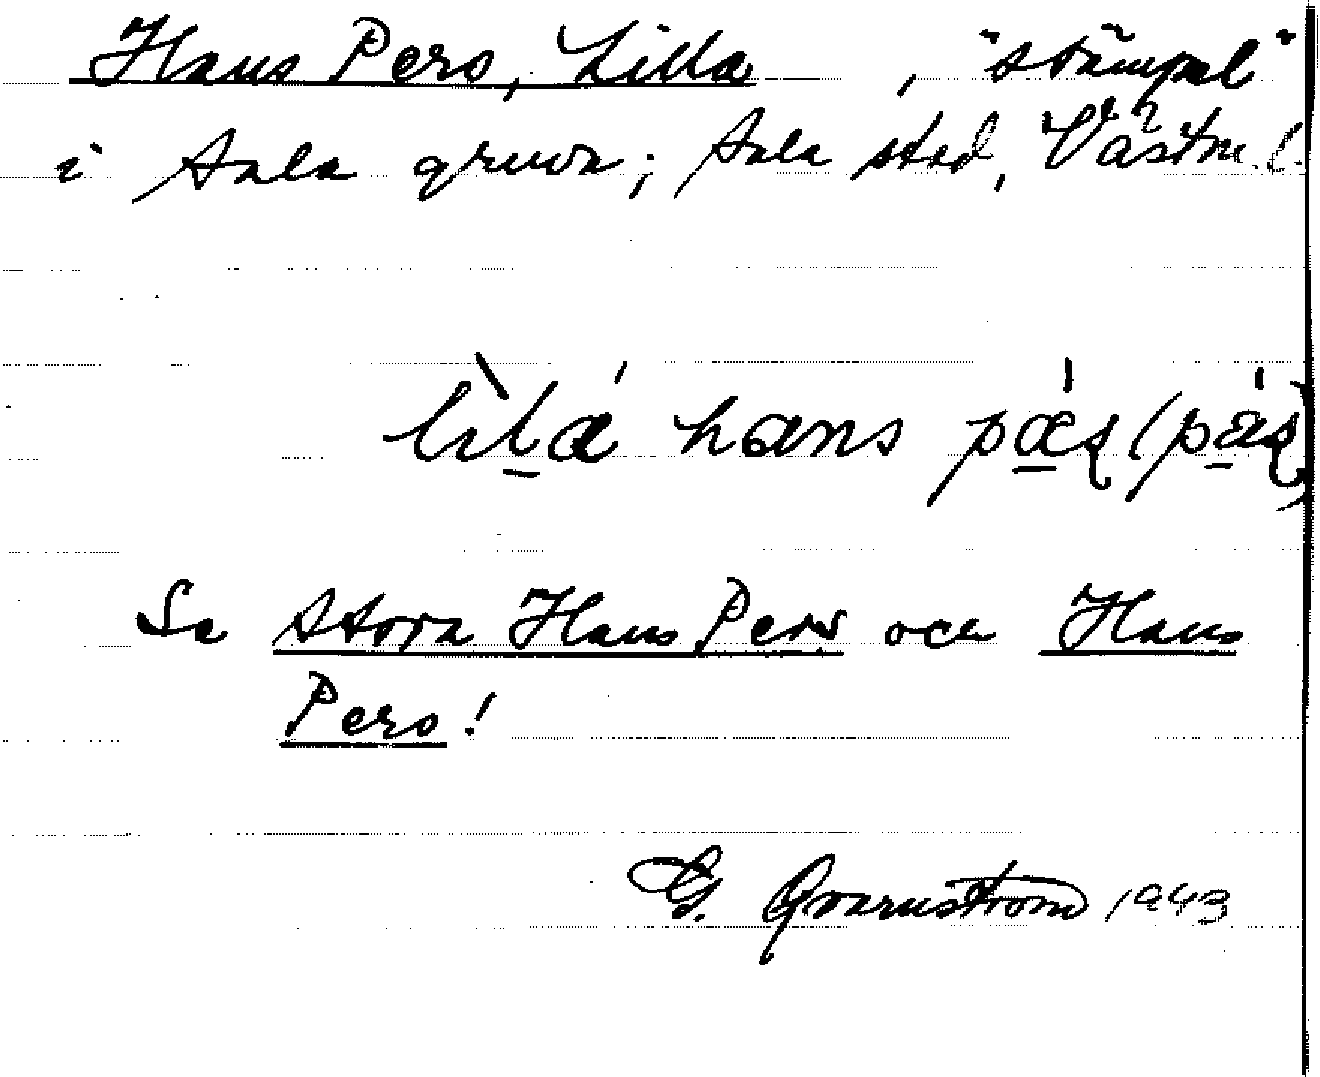 Hans Pers, Lilla, "stämpel"
i Sala gruva; Sala stad, Västm. l.
lìla hans pæș (pаș)
Se Stora Hans Pers och Hans
Pers!
G. Qvarnström 1943